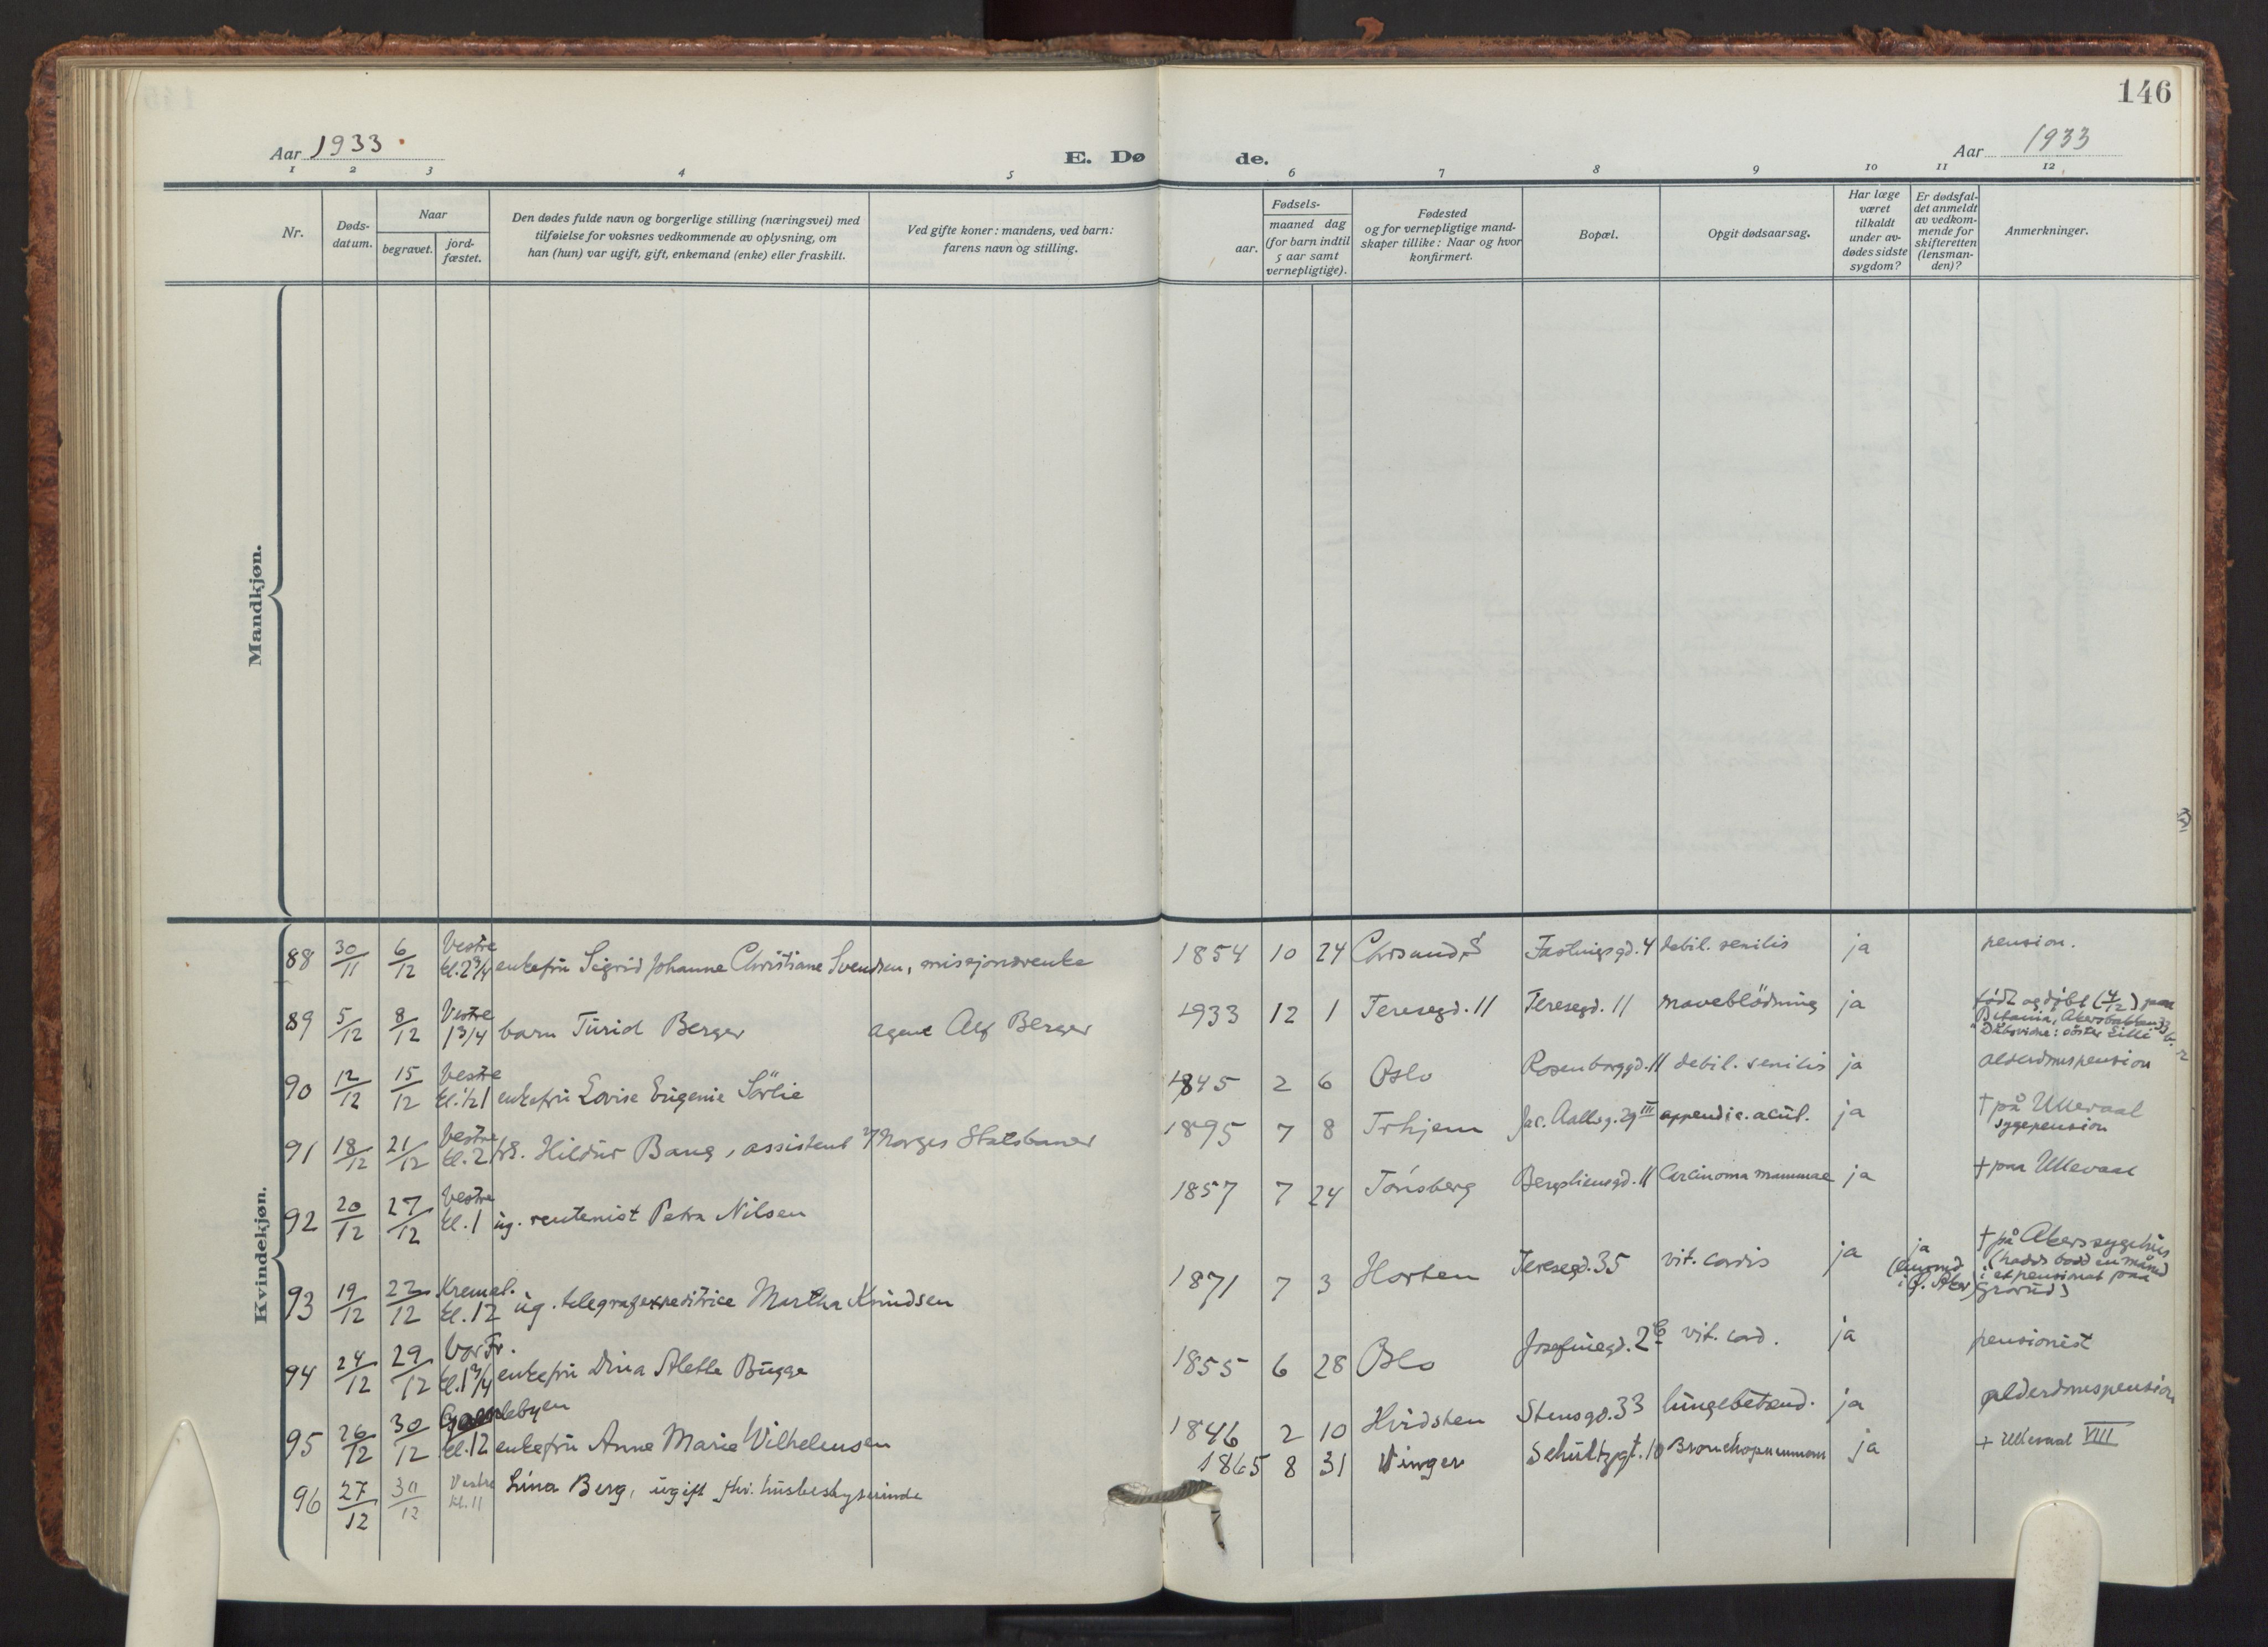 146
Aar 1933.
E. Dø de.
Aar 1933
1 2 3 4 5 6 7 8 9 10 11 12
Nr.
Døds-
datum.
Naar
begravet.
jord-
fæstet.
Den dødes fulde navn og borgerlige stilling (næringsvei) med
tilføielse for voksnes vedkommende av oplysning, om
han (hun) var ugift, gift, enkemand (enke) eller fraskilt.
Ved gifte koner: mandens, ved barn:
farens navn og stilling.
Fødsels-
aar.
maaned dag
(for barn indtil
5 aar samt
vernepligtige).
Fødested
og for vernepligtige mand-
skaper tillike: Naar og hvor
konfirmert.
Bopæl.
Opgit dødsaarsag.
Har læge
været
tilkaldt
under av-
dødes sidste
sygdom?
Er dødsfal-
det anmeldt
av vedkom-
mende for
skifteretten
(lensman-
den)?
Anmerkninger.
Mandkjøn.
Kvindekjøn.
88 30/11 6/12 Vestre kl. 2 3/4 enkefru Sigrid Johanne Christiane Svendsen, misjonærenke 1854 10 24 Chrsand S Fastingsgd. 4 debil. senilis ja pension.
89 5/12 8/12 Vestre 1 3/4 barn Turid Berger agent Alf Berger 1933 12 1 Teresegd. 11 Teresegd. 11 maveblödning ja født og døbt (4/12) paa
Betania, Akersbakken
Dåbsvidne: söster Lilli
90 12/12 15/12 Vestre kl. 1/2 1 enkefru Lovise Eugenie Sörlie 1845 2 6 Oslo Rosenborggd. 11 debil. senilis ja alderdomspension
91 18/12 21/12 Vestre kl. 2 frk. Hildur Bang, assistent v/ Norges Statsbaner 1895 7 8 Trhjem Jac. Aallsg. 29 III appendic. acut. ja † på Ullevaal
sygepension
92 20/12 27/12 Vestre kl. 1 ug. rentenist Petra Nilsen 1857 7 24 Tönsberg Bergsliensgd. 11 Carcinoma mammae ja † paa Ullevaal
93 19/12 22/12 Kremat. kl. 12 ug. telegrafexpeditrice Martha Knudsen 1871 7 3 Horten Teresegd. 35 vit. cordis ja ja † på Akers sygehus
(hadde bodd en måned
i et pensionat paa
Grorud)
94 24/12 29/12 Vor Fr. kl. 1 3/4 enkefru Dina Alette Bugge 1855 6 28 Oslo Josefinegd. 2 vit. cord. ja pensionist
95 26/12 30/12 Gamlebyen kl. 12 enkefru Anne Marie Wilhelmsen 1846 2 10 Hvidsten Stensgd. 33 lungebetænd. ja alderdomspension
96 27/12 30/12 Vestre kl. 11 Lina Berg, ugift fhv. husbestyrerinde 1865 8 31 Vinger Schultzgt. 10 Bronchopneumoni ja + Ullevaal VIII